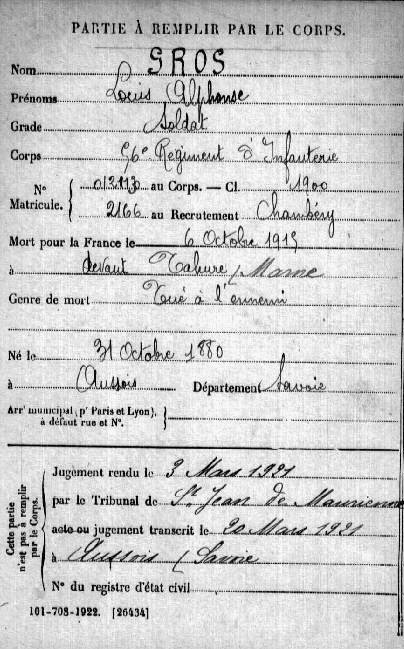 PARTIE À REMPLIR PAR LE CORPS.
Nom GROS
Prénoms Louis Alphonse
Grade Soldat
Corps 56e Régiment d'Infanterie
N° Matricule. 013113 au Corps. — Cl. 1900
2166 au Recrutement Chambéry
Mort pour la France le 6 Octobre 1915
à devant Tahure / Marne
Genre de mort Tué à l'ennemi
Né le 31 Octobre 1880
à Aussois Département Savoie
Arrt municipal (pr Paris et Lyon),
à défaut rue et N°.
Cette partie n'est pas à remplir par le Corps.
Jugement rendu le 3 Mars 1921
par le Tribunal de St Jean de Maurienne
acte ou jugement transcrit le 20 Mars 1921
à Aussois / Savoie
N° du registre d'état civil
101-708-1922. [26434]